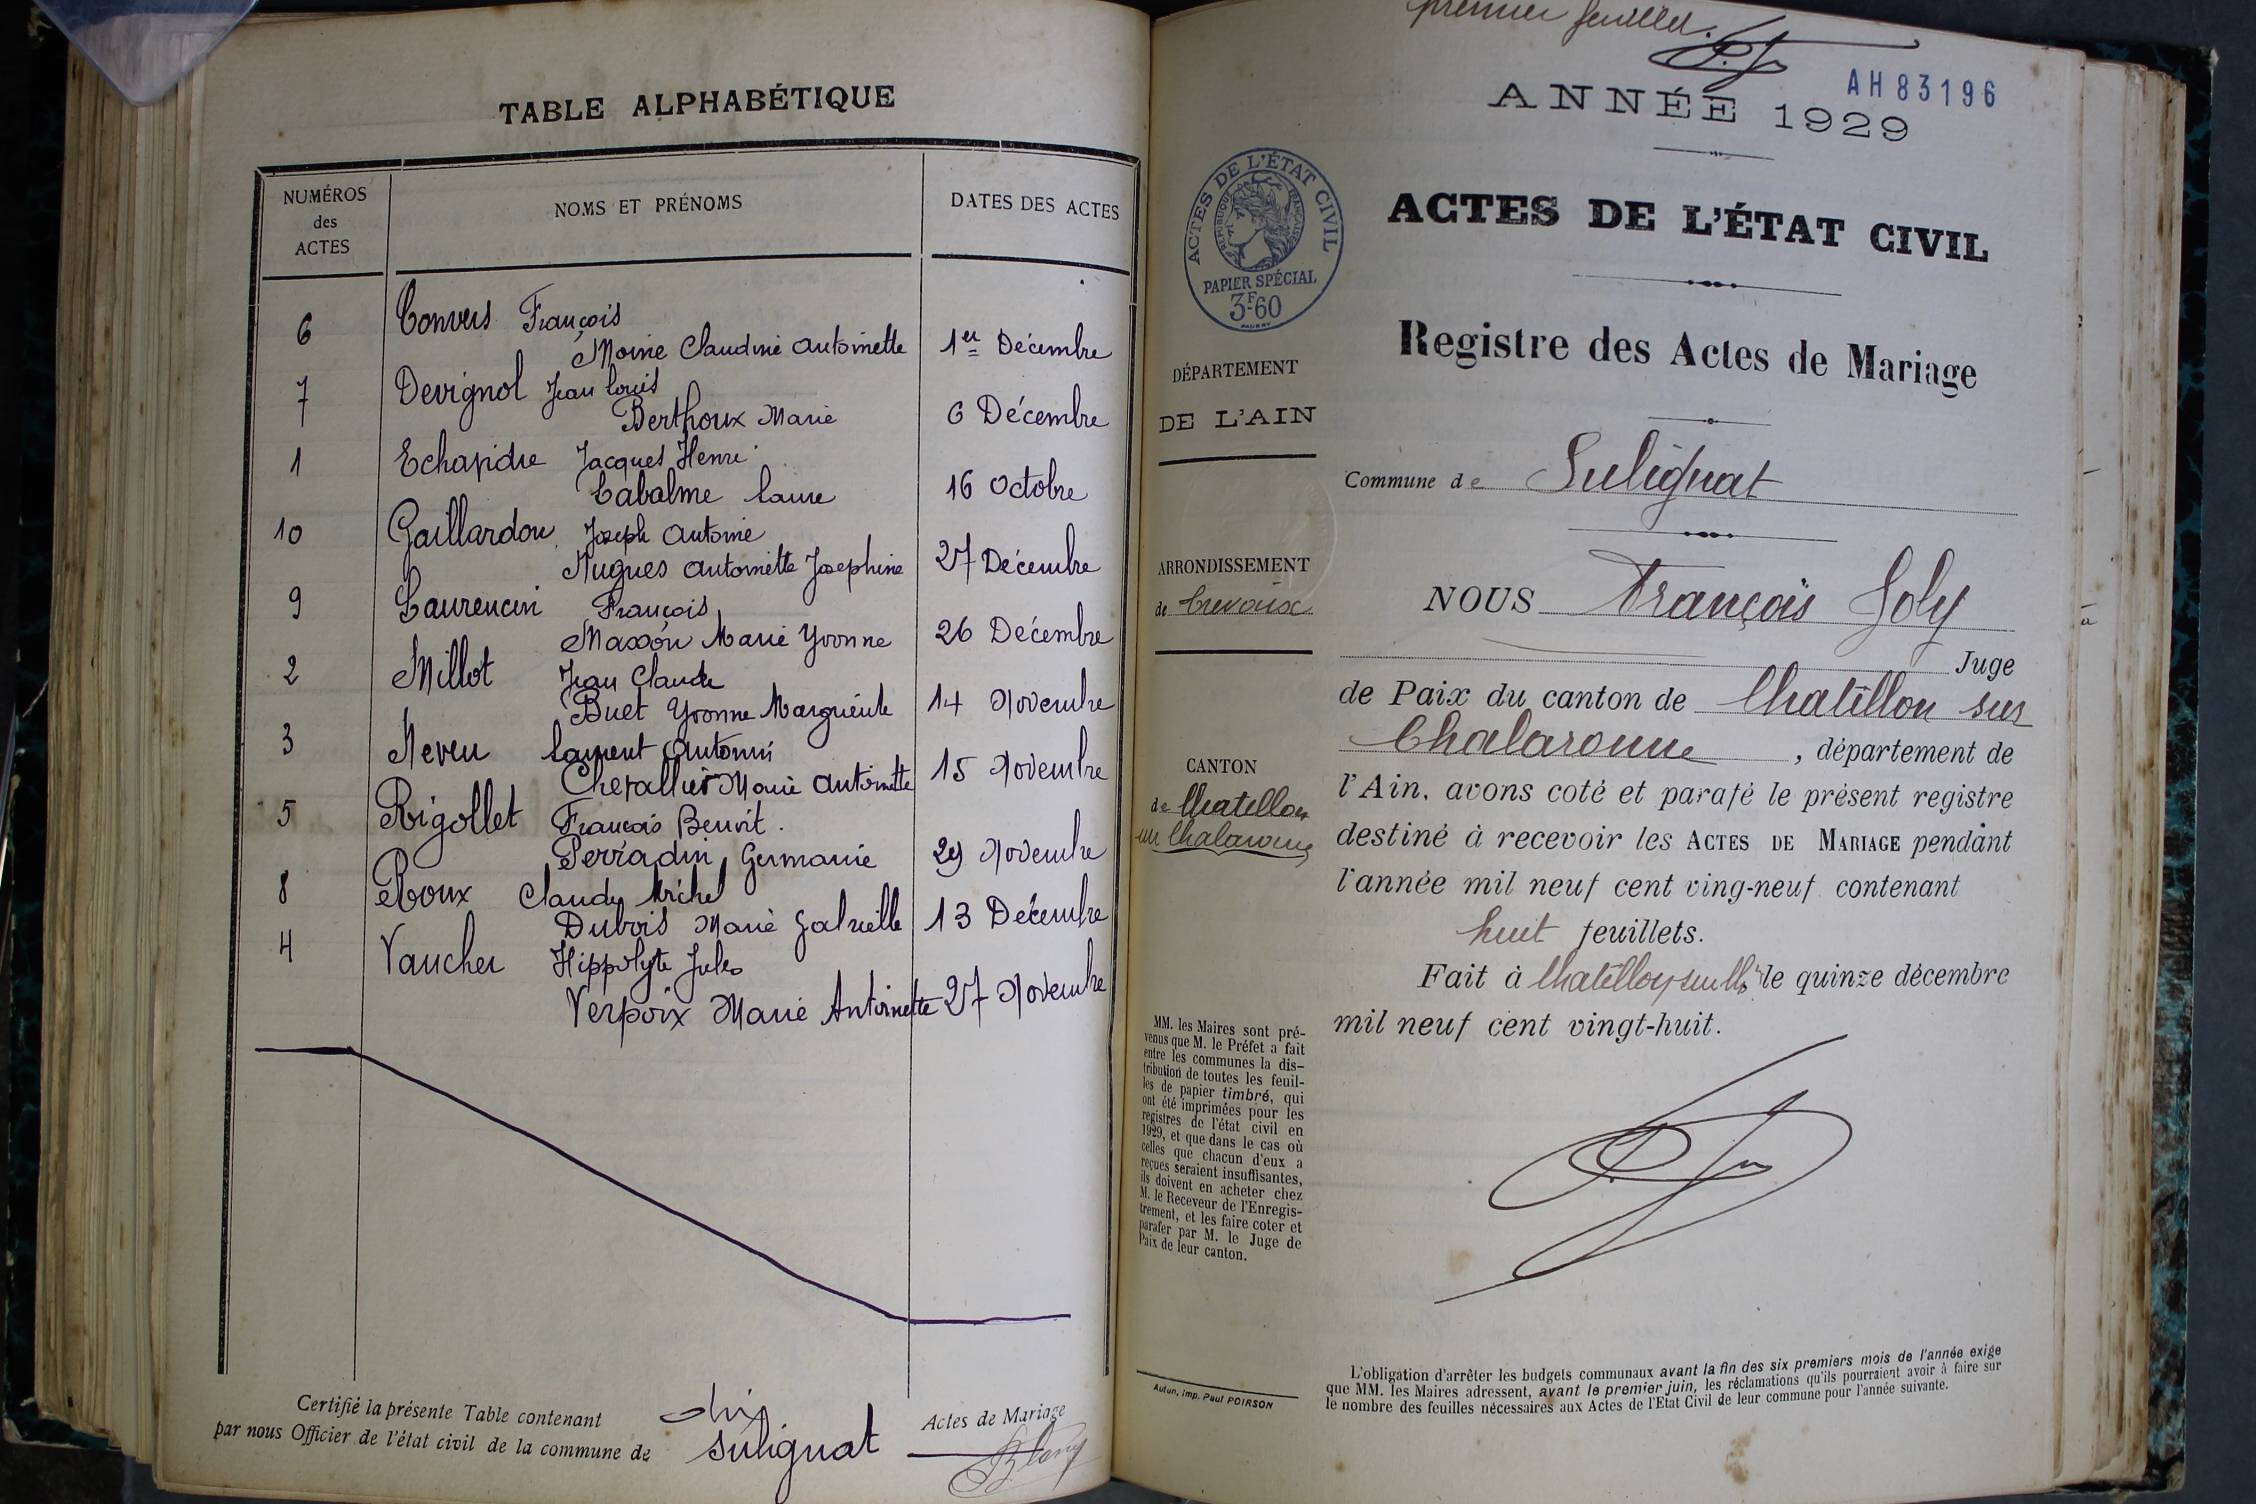 TABLE ALPHABÉTIQUE
NUMÉROS des ACTES
NOMS ET PRÉNOMS
DATES DES ACTES
6 Convers François
Moine Claudine Antoinette 1er Décembre
7 Devignol Jean Louis
Berthoux Marie 6 Décembre
1 Echapidre Jacques Henri
Cabalme Laure 16 Octobre
10 Gaillardon Joseph Antoine
Hugues Antoinette Josephine 27 Décembre
9 Laurencin François
Masson Marie Yvonne 26 Décembre
2 Millot Jean Claude
Buet Yvonne Marguerite 14 Novembre
3 Neveu Laurent Antonin
Chevallier Marie Antoinette 15 Novembre
5 Rigollet François Benoit.
Perradin Germanie 29 Novembre
8 Roux Claude Michel
Dubois Marie Gabrielle 13 Décembre
4 Vaucher Hippolyte Jules
Verpoix Marie Antoinette 27 Novembre
Certifié la présente Table contenant dix Actes de Mariage
par nous Officier de l'état civil de la commune de Sulignat
premier feuillet.
AH83196
ANNÉE 1929
ACTES DE L'ÉTAT CIVIL
RÉPUBLIQUE FRANÇAISE
PAPIER SPÉCIAL
3F-60
ACTES DE L'ÉTAT CIVIL
Registre des Actes de Mariage
DÉPARTEMENT
DE L'AIN
Commune de Sulignat
ARRONDISSEMENT
de Trévoux
CANTON
de Chatillon
sur Chalaronne
NOUS François Joly
Juge
de Paix du canton de Chatillon sur
Chalaronne, département de
l'Ain, avons coté et parafé le présent registre
destiné à recevoir les ACTES DE MARIAGE pendant
l'année mil neuf cent ving-neuf contenant
huit feuillets.
Fait à Chatillon sur Ch. le quinze décembre
mil neuf cent vingt-huit.
MM. les Maires sont pré-
venus que M. le Préfet a fait
entre les communes la dis-
tribution de toutes les feuil-
les de papier timbré, qui
ont été imprimées pour les
registres de l'état civil en
1929, et que dans le cas où
celles que chacun d'eux a
reçues seraient insuffisantes,
ils doivent en acheter chez
M. le Receveur de l'Enregis-
trement, et les faire coter et
parafer par M. le Juge de
Paix de leur canton.
Autun, imp. Paul POIRSON
L'obligation d'arrêter les budgets communaux avant la fin des six premiers mois de l'année exige
que MM. les Maires adressent, avant le premier juin, les réclamations qu'ils pourraient avoir à faire sur
le nombre des feuilles nécessaires aux Actes de l'Etat Civil de leur commune pour l'année suivante.